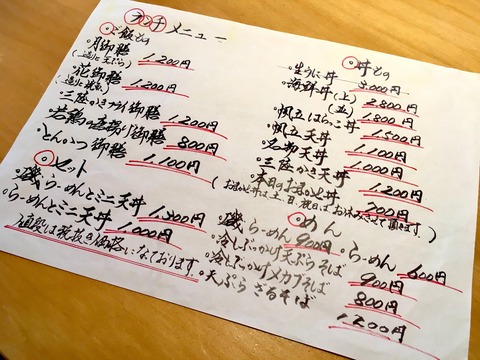 ランチメニュー
○ご飯もの
・月御膳 1,200円
(造りに天ぷら)
・花御膳 1,200円
(造りに焼魚)
・三陸かきフライ御膳 1,200円
・若鶏の唐揚げ御膳 800円
・とんかつ御膳 1,100円
○セット
・磯らーめんとミニ天丼 1,300円
・らーめんとミニ天丼 1,000円
値段は税抜き価格になております
○丼もの
・生うに丼 3,000円
・海鮮丼(上) 2,800円
(並) 1,800円
・帆立はらこ丼 1,500円
・帆立天丼 1,100円
・名物天丼 1,000円
・三陸かき天丼 1,200円
・本日のおまかせ丼 700円
(おまかせ丼は土、日、祝日はお休みさせて頂きます)
○めん
・磯らーめん 900円
・らーめん 600円
・冷しぶっかけ天ぷらそば 900円
・冷しぶっかけメカブそば 800円
・天ぷらざるそば 1200円